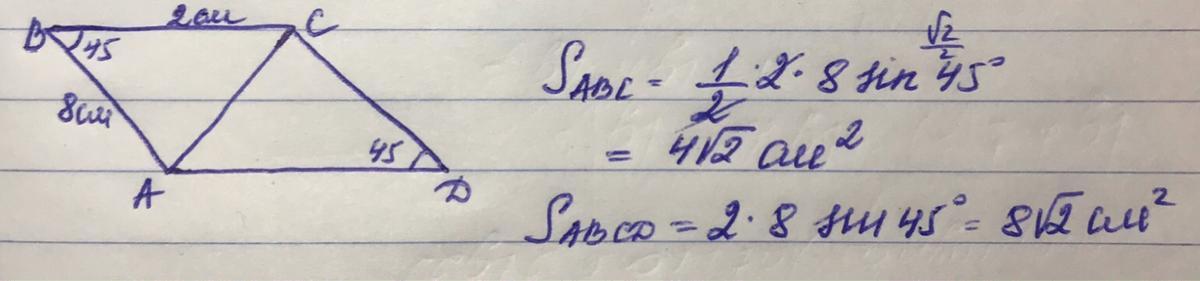 B 2 см C
45
8 см
45
A D
S_ABC = 1/2 · 2 · 8 sin 45° √2/2
= 4√2 см²
S_ABCD = 2 · 8 sin 45° = 8√2 см²